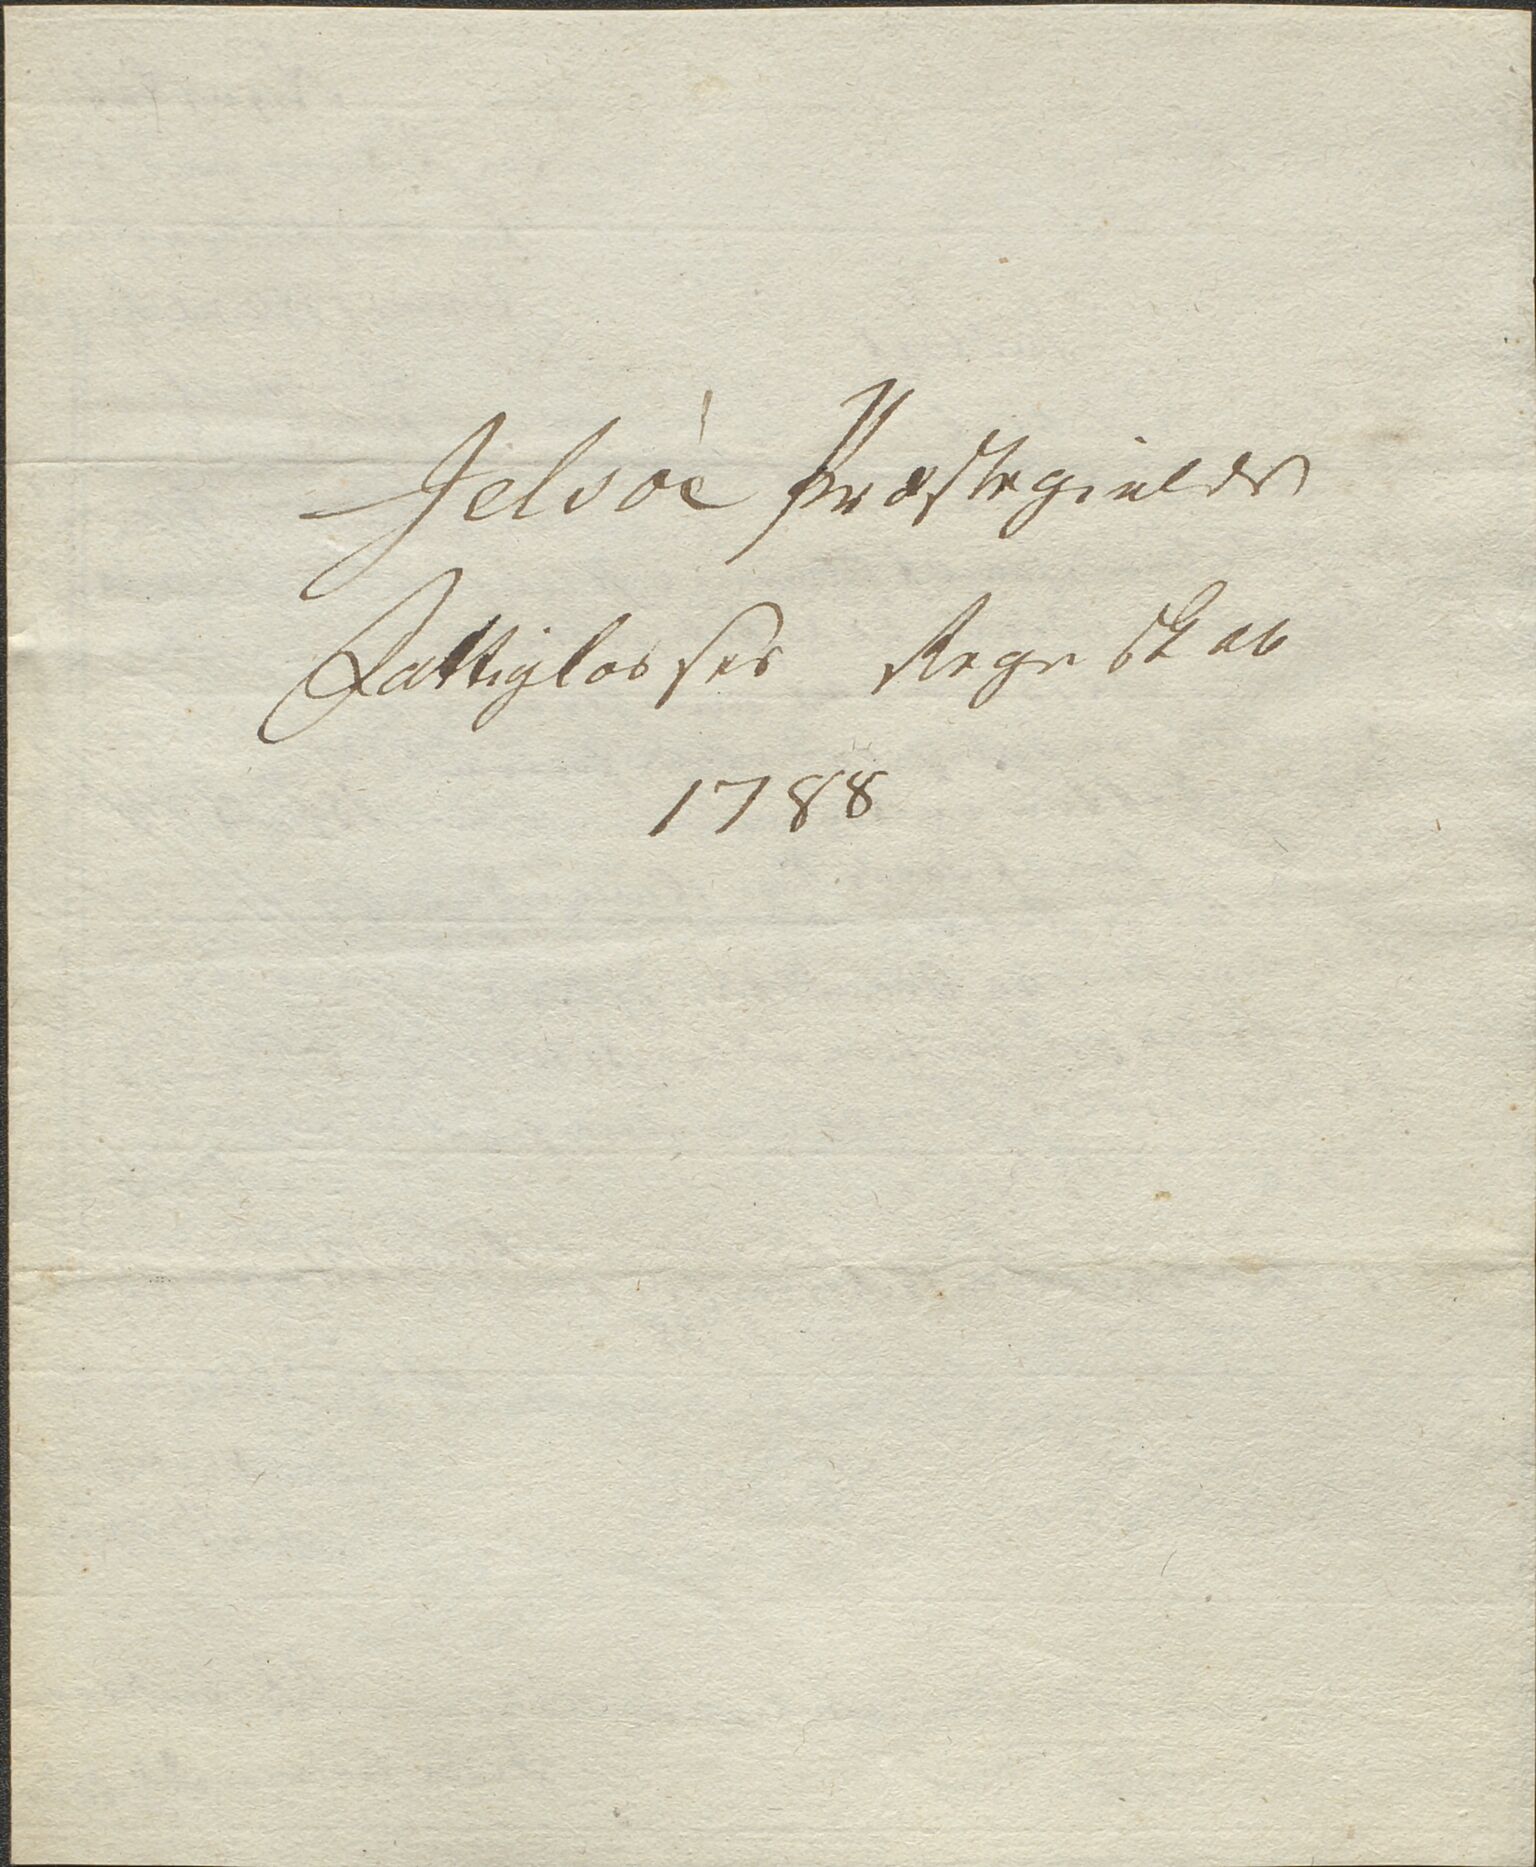 Jelsöe Præstegields
Fattigkasses Regnskab
1788